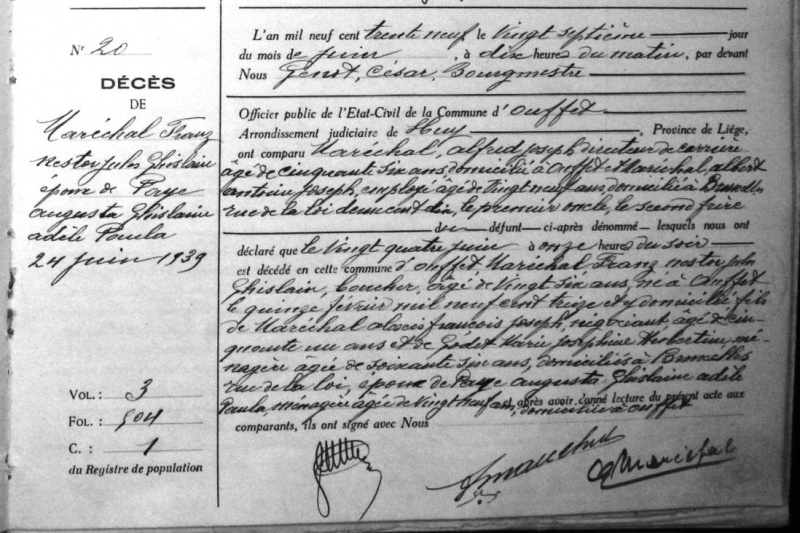 N° 20
DÉCÈS
DE
Maréchal Franz
nestor Jules Ghislain
époux de Paye
augusta Ghislaine
adèle Paula
24 juin 1939
VOL.: 3
FOL.: 504
C.: 1
du Registre de population
L'an mil neuf cent trente neuf le vingt septième jour
du mois de juin, à dix heures du matin, par devant
Nous Genot, César, Bourgmestre
Officier public de l'Etat-Civil de la Commune d'Ouffet
Arrondissement judiciaire de Huy, Province de Liége,
ont comparu Maréchal, alfred Joseph directeur de carrière
âgé de cinquante six ans, domicilié à Ouffet et Maréchal, albert
antoine Joseph, employé âgé de vingt neuf ans domicilié à Bruxelles
rue de la loi deux cent dix, le premier oncle, le second frère
du défunt ci-après dénommé lesquels nous ont
déclaré que le vingt quatre juin à onze heures du soir
est décédé en cette commune d'Ouffet Maréchal Franz nestor jules
Ghislain, boucher, âgé de vingt six ans, né à Ouffet
le quinze février mil neuf cent treize et y domicilié fils
de Maréchal alexis françois Joseph, négociant âgé de cin-
quante un ans et de Godet Marie Joséphine Hubertine, mé-
nagère âgée de soixante six ans, domiciliés à Bruxelles
rue de la loi, époux de Paye augusta Ghislaine adèle
Paula, ménagère âgée de vingt neuf ans, domiciliée à Ouffet
et après avoir donné lecture du présent acte aux
comparants, ils ont signé avec Nous
Maréchal